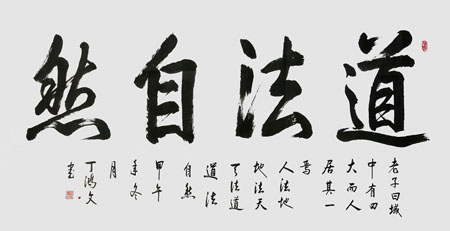 道法自然
老子曰域
中有四
大而人
居其一
焉
人法地
地法天
天法道
道法
自然
甲午
年冬
月
丁鸿文
书